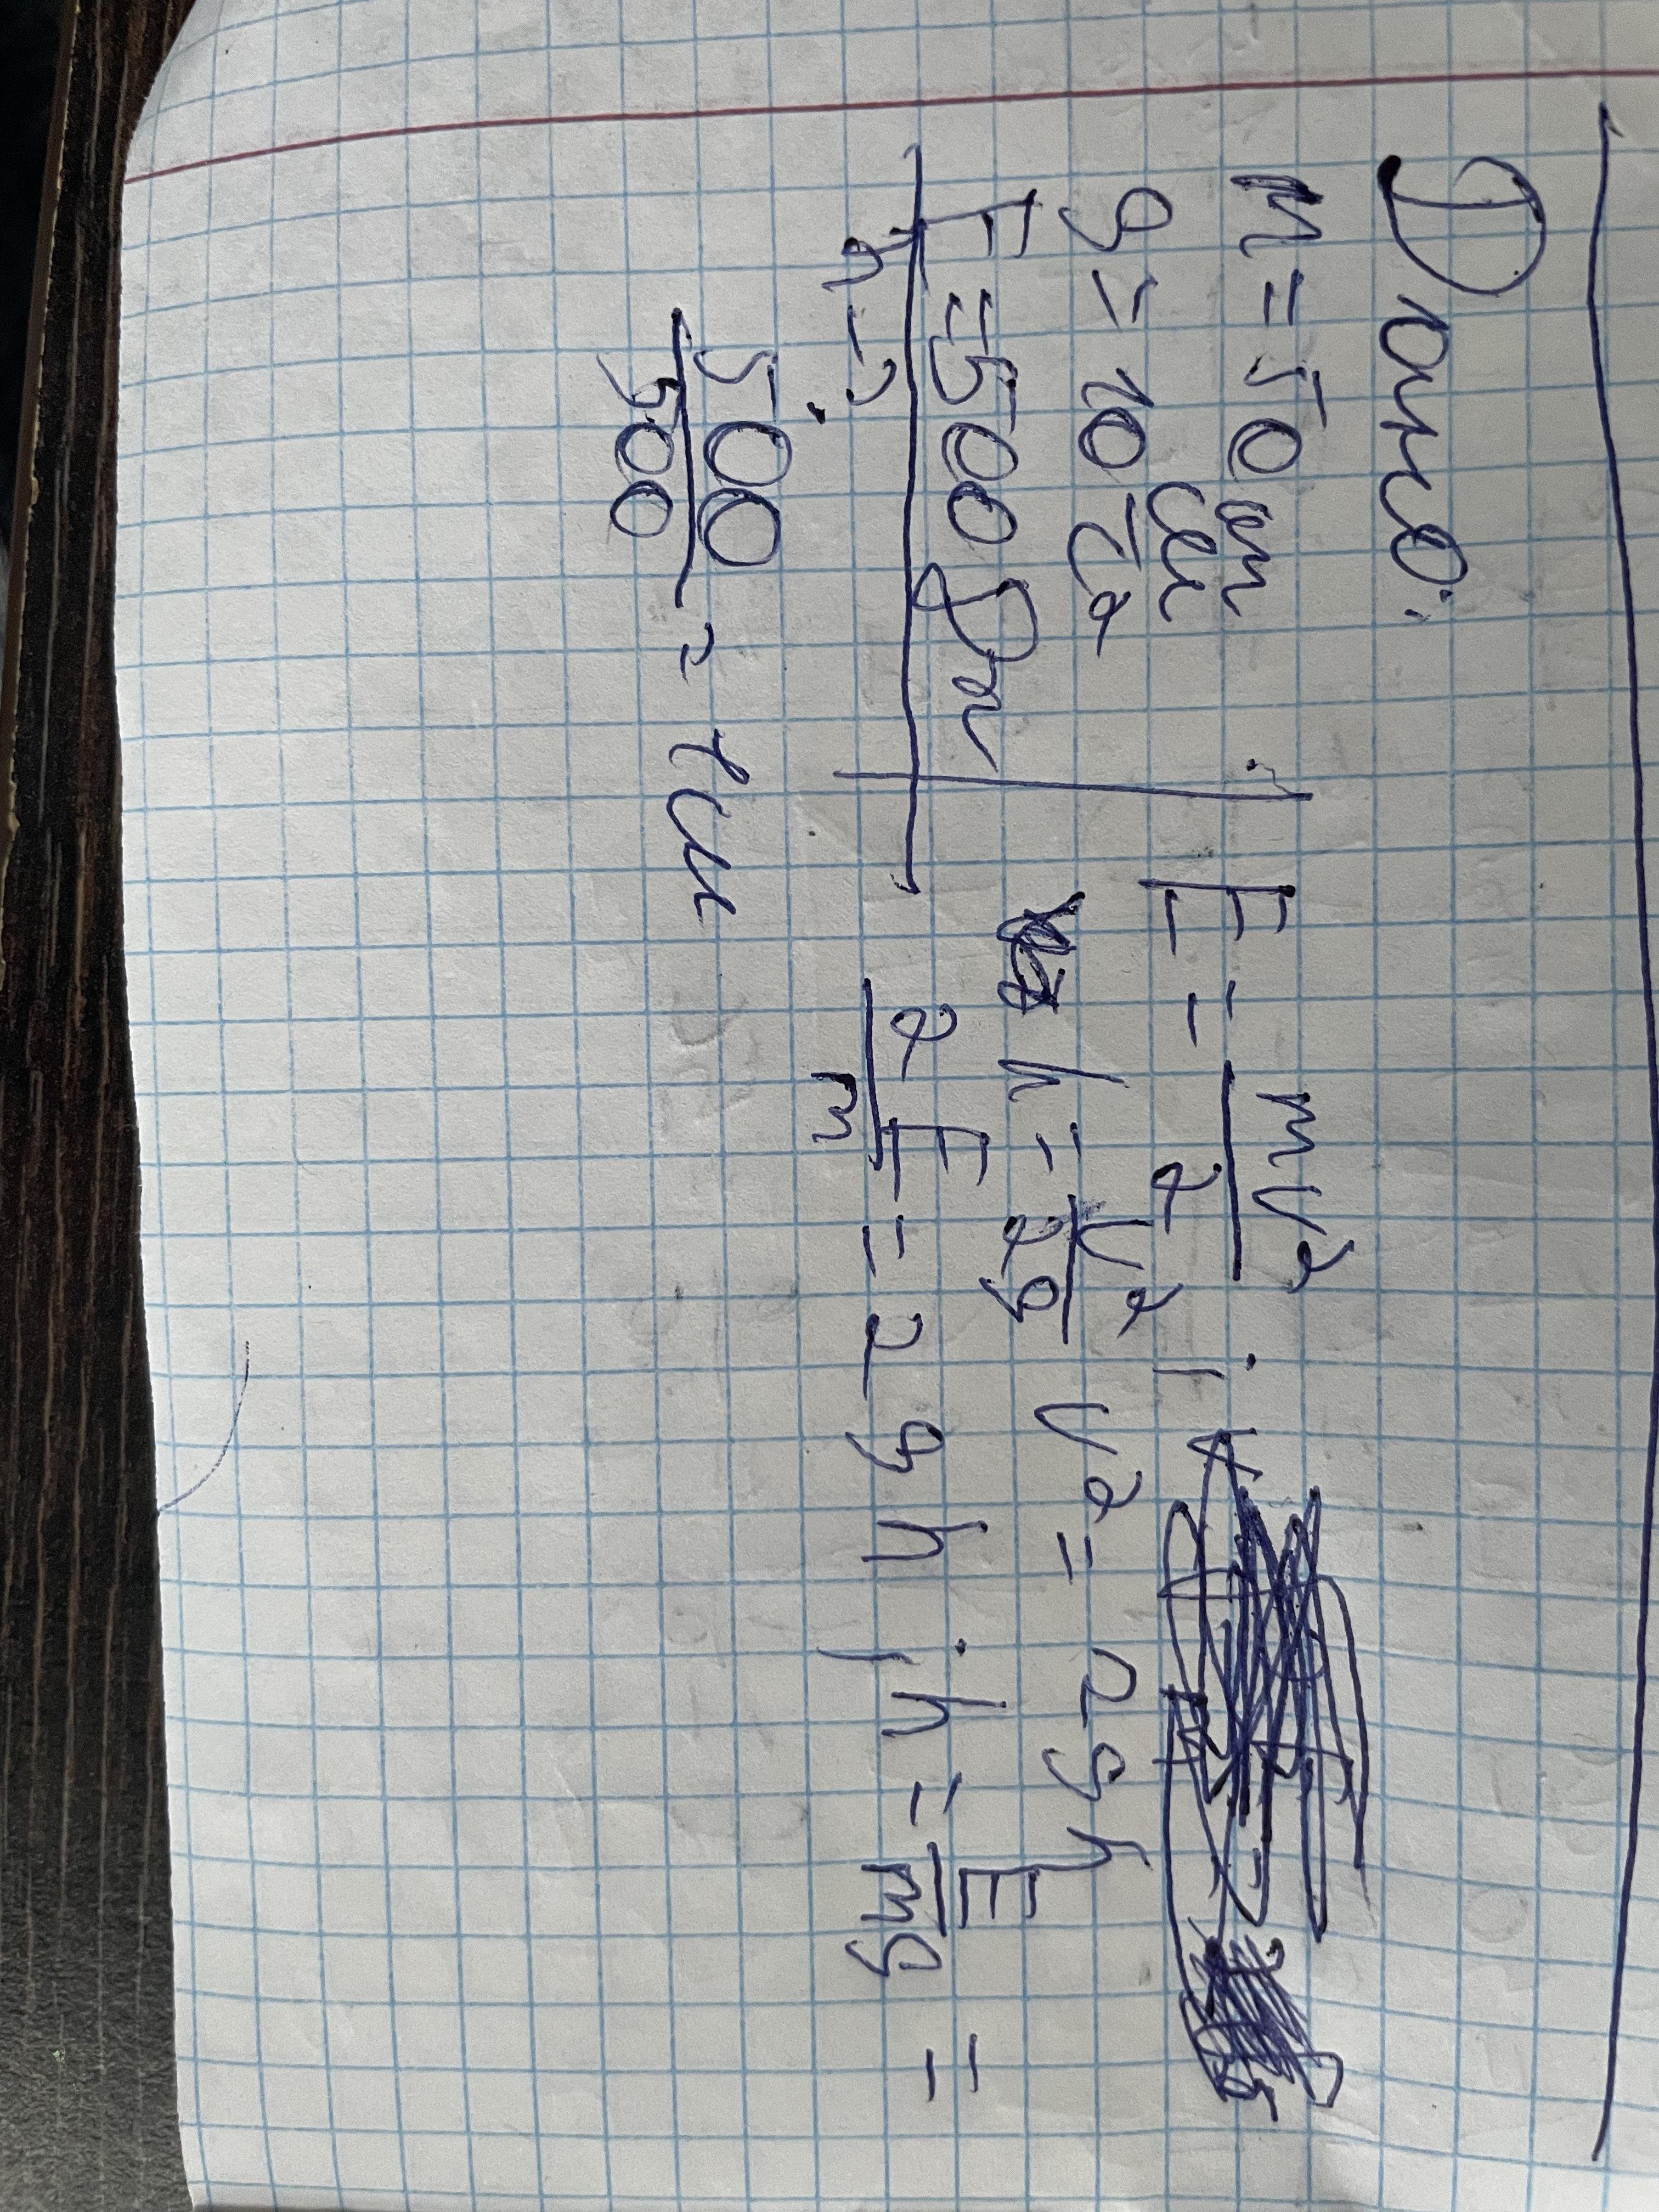 Дано:
m = 50 кг
g = 10 м/с²
E = 500 Дж
h - ?
E = mv²/2 ;
h = v²/2g v² = 2gh
2E/m = 2gh ; h = E/mg =
500/500 = 1 м